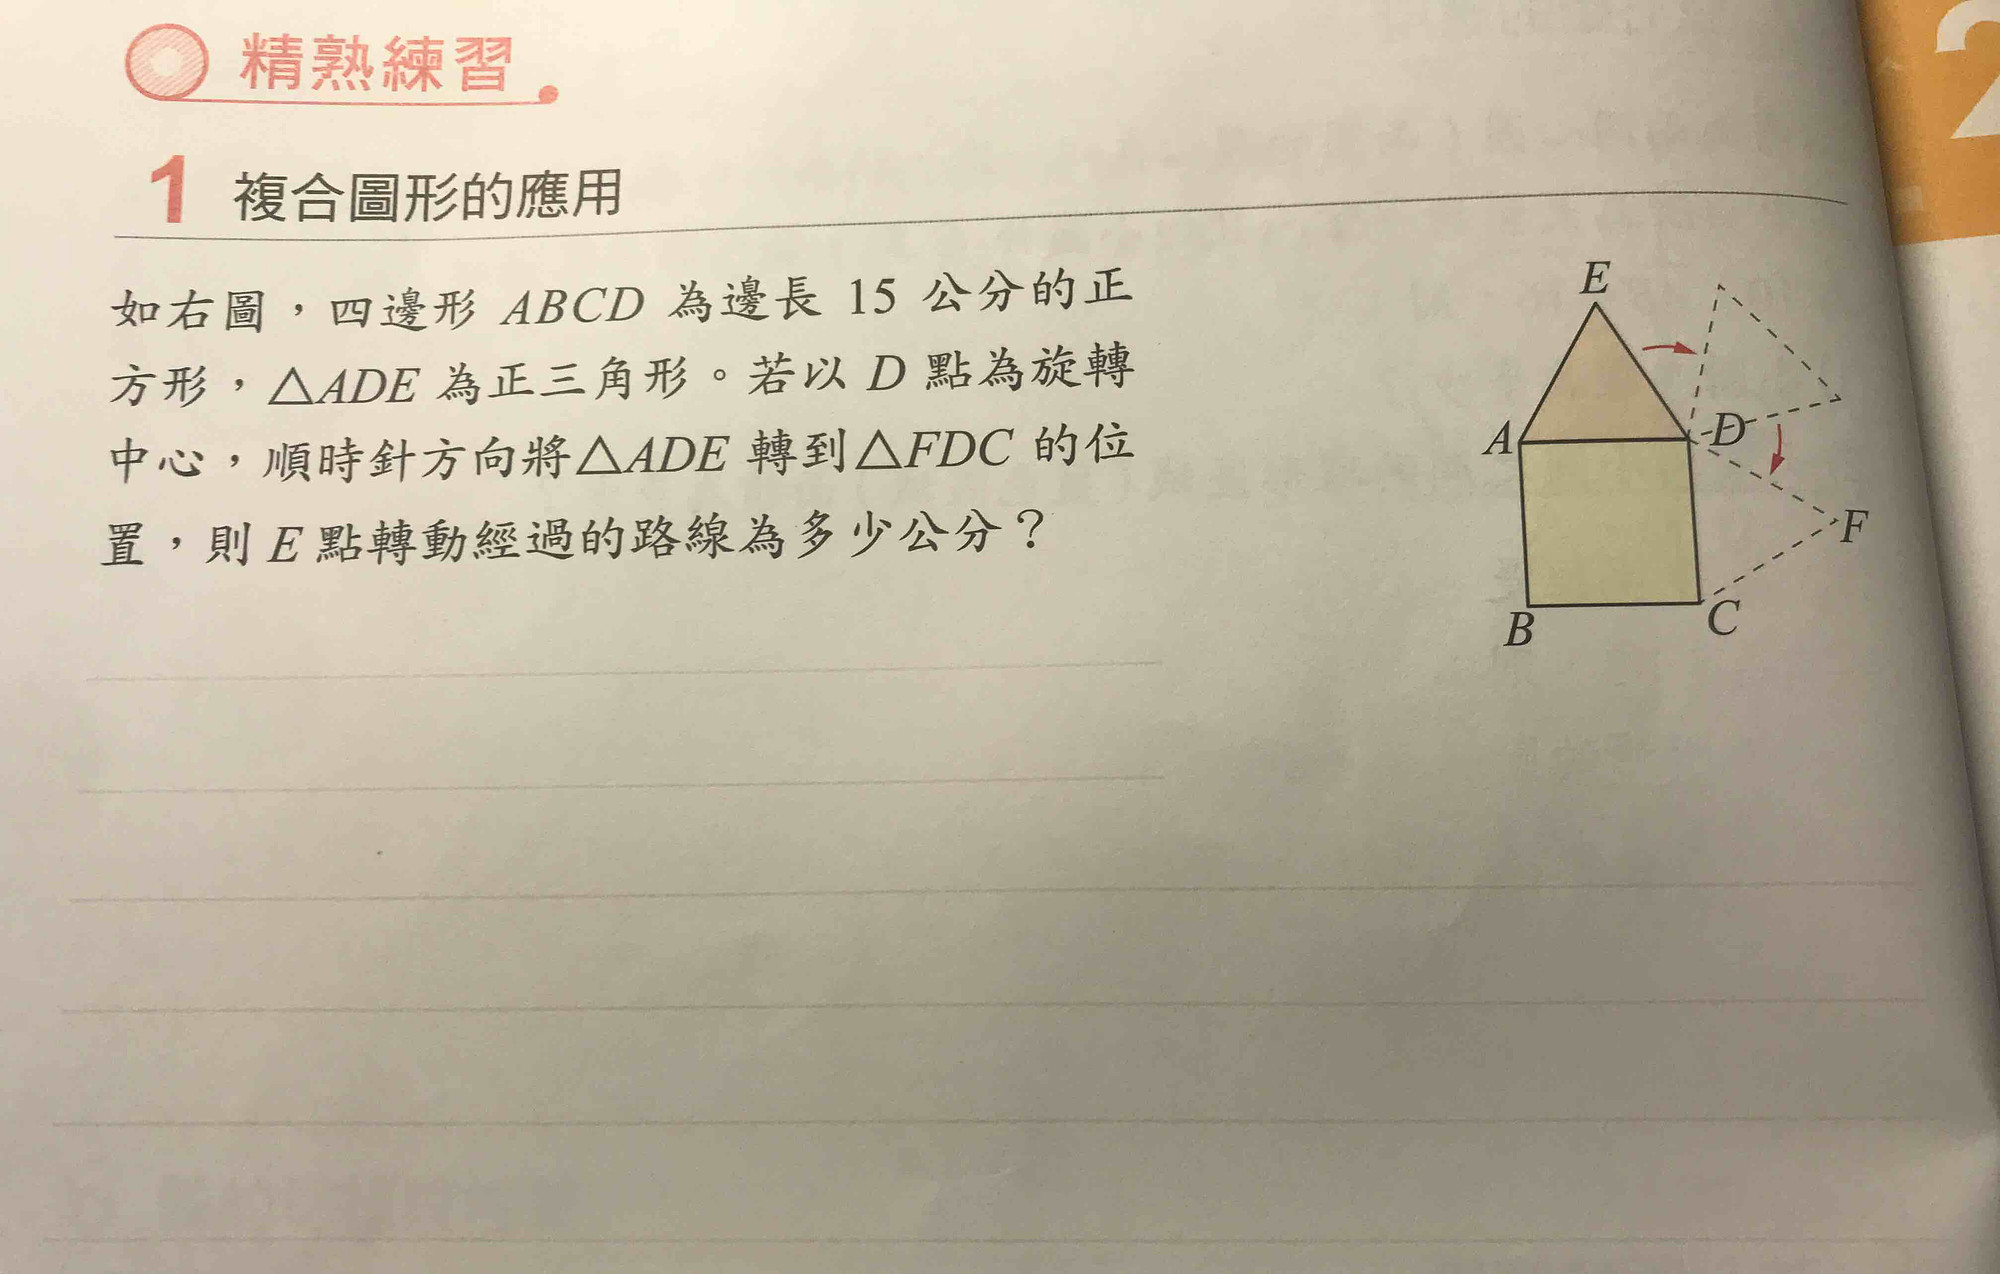 精熟練習
2
1 複合圖形的應用
如右圖，四邊形 ABCD 為邊長 15 公分的正
方形，△ADE 為正三角形。若以 D 點為旋轉
中心，順時針方向將△ADE 轉到△FDC 的位
置，則 E 點轉動經過的路線為多少公分？
E
A
D
F
B
C